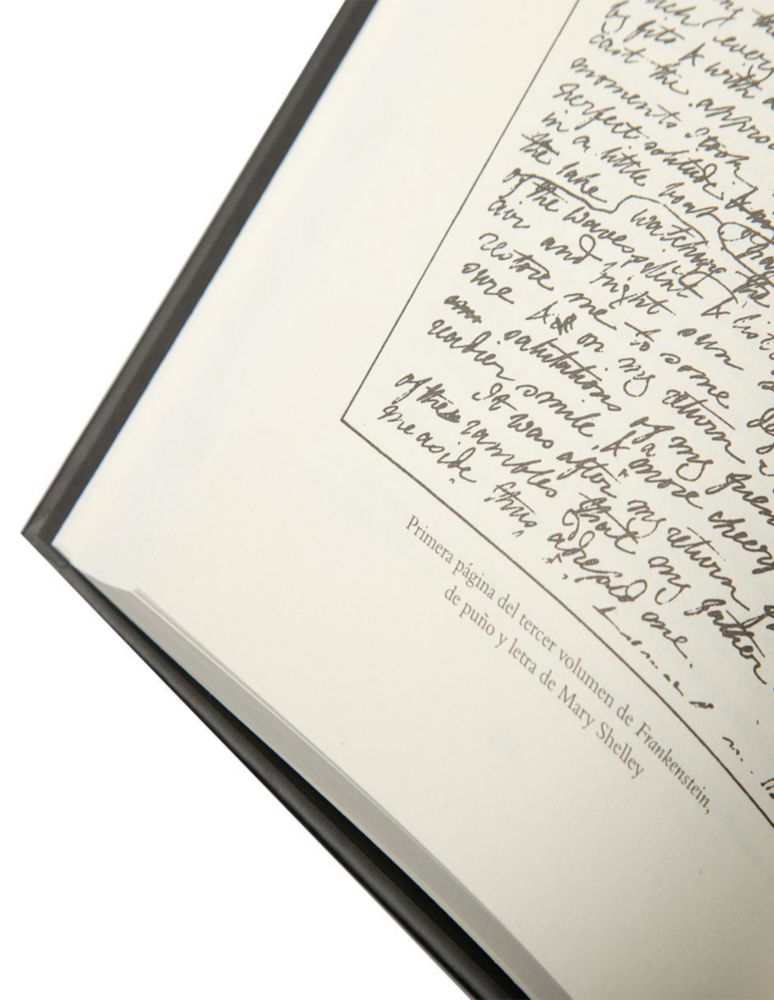 by fits & with a
cast the approa
moments I took
perfect solitude
in a little boat
the lake watching the
of the waves silent & list
air and bright sun
restore me to some deg
sure & on my return
salutations of my frien
readier smile & more cheery
It was after my return
of the rambles that my father
me aside thus adressed me.
Primera página del tercer volumen de Frankenstein,
de puño y letra de Mary Shelley